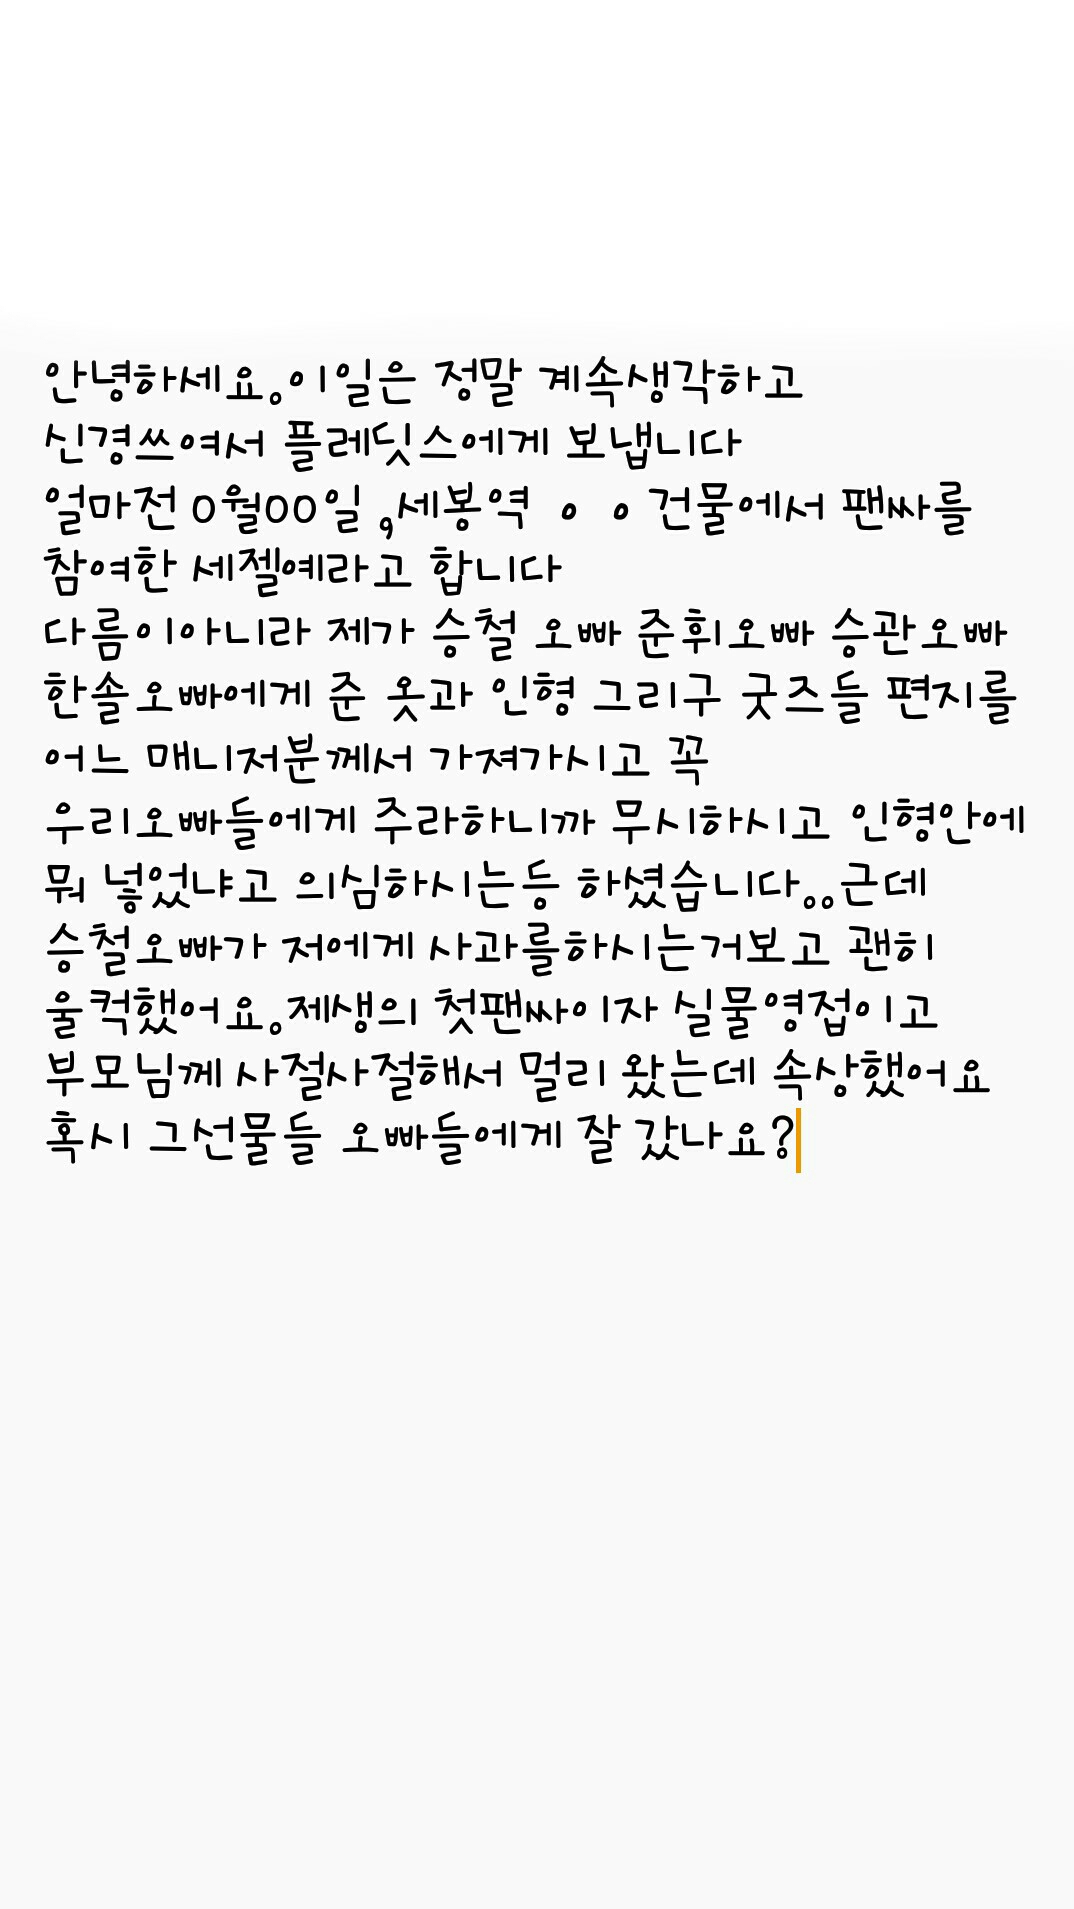 안녕하세요.이일은 정말 계속생각하고
신경쓰여서 플레딧스에게 보냅니다
얼마전 0월00일 ,세봉역 ㅇㅇ건물에서 팬싸를
참여한 세젤예라고 합니다
다름이아니라 제가 승철 오빠 준휘오빠 승관오빠
한솔오빠에게 준 옷과 인형 그리구 굿즈들 편지를
어느 매니저분께서 가져가시고 꼭
우리오빠들에게 주라하니까 무시하시고 인형안에
뭐 넣었냐고 의심하시는등 하셨습니다..근데
승철오빠가 저에게 사과를하시는거보고 괜히
울컥했어요.제생의 첫팬싸이자 실물영접이고
부모님께 사절사절해서 멀리 왔는데 속상했어요
혹시 그선물들 오빠들에게 잘 갔나요?